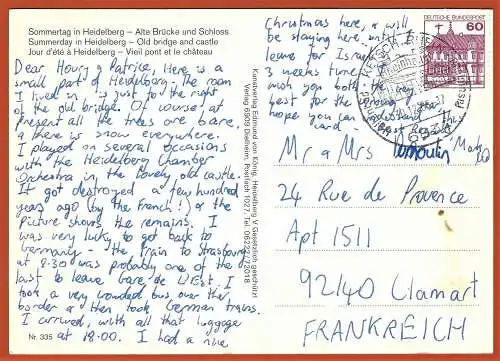 Sommertag in Heidelberg – Alte Brücke und Schloss
Summerday in Heidelberg – Old bridge and castle
Jour d'été à Heidelberg – Vieil pont et le château
Dear Houry & Patrice, Here is a
small part of Heidelberg. The room
I lived in is just to the right
of the old bridge. Of course at
present all the trees are bare,
& there is snow everywhere.
I played on several occasions
with the Heidelberg Chamber
Orchestra in the lovely old castle.
It got destroyed a few hundred
years ago (by the French!) & the
Picture shows the remains. I
was very lucky to get back to
Germany – the train to Strasbourg
at 8:30 was probably one of the
last to leave Gare de L'Est. I
took a very crowded bus over the
border & then took German trains.
I arrived, with all that luggage
at 18.00. I had a nice
Nr. 335
Kunstverlag Edmund von König, Heidelberg V Gesetzlich geschützt
Verlag 6909 Dielheim, Postfach 1027, Tel. 06222/72018
Christmas here, & will
be staying here until I
leave for Israel
3 weeks time
wish you both
best for the
I hope you can
understand
hard
DEUTSCHE BUNDESPOST
60
Mr & Mrs
24 Rue de Provence
Apt 1511
92140 Clamart
FRANKREICH